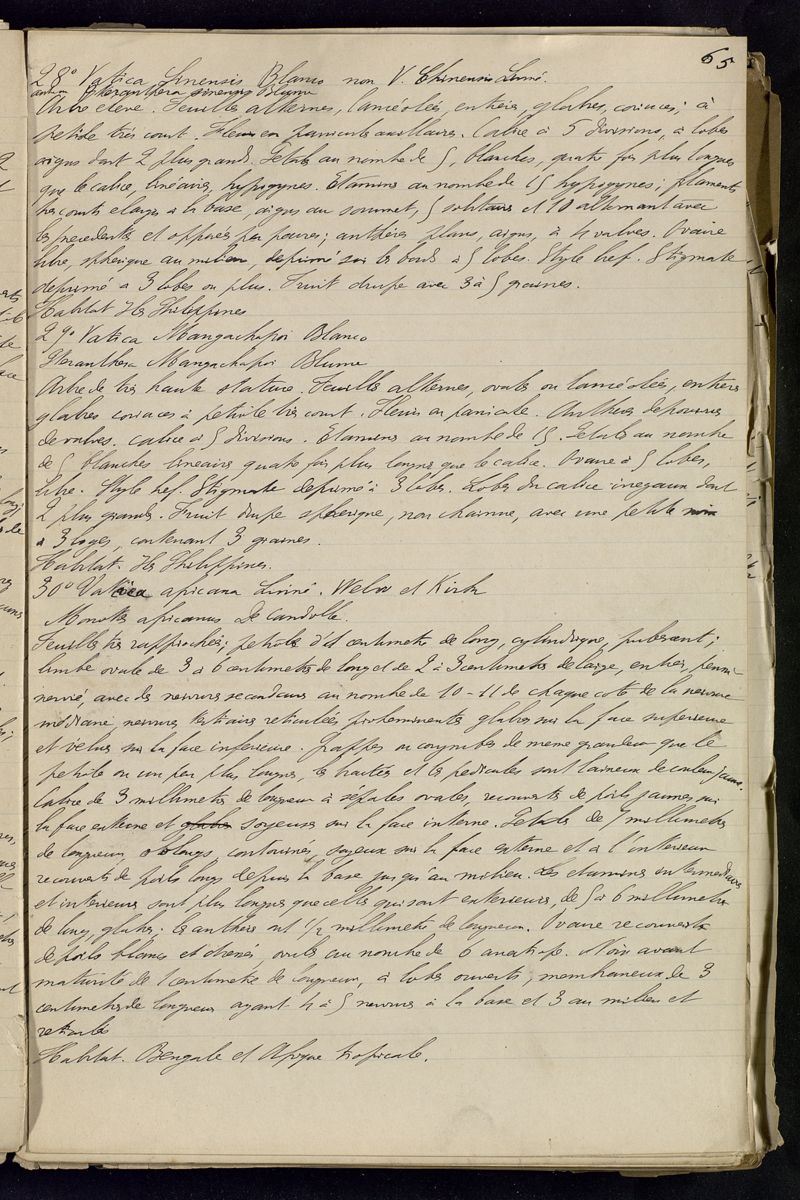 65
28° Vatica Sinensis Blanco non V. Chinensis Linné
Pteranthera sinensis Blume
Arbre élevé. Feuilles alternes, lancéolées, entières, glabres, coriaces; à
petiole très court. Fleurs en panicule axillaires. Calice à 5 divisions, à lobes
aigus dont 2 plus grands. Petals au nombre de 5, blanches, quatre fois plus longues
que le calice, linéaires, hypogynes. Etamines au nombre de 15 hypogynes; filaments
très courts elargis à la base, aigus au sommet, 5 solitaires et 10 alternant avec
les precedentes et opposés par paires; anthères planes, aigus, à 4 valves. Ovaire
libre, spherique au milieu, deprimé sur les bords à 5 lobes. Style bref. Stigmate
deprimé à 3 lobes ou plus. Fruit drupe avec 3 à 5 graines.
Habitat Iles Philippines
29° Vatica Mangachapoi Blanco
Pteranthera Mangachapoi Blume
Arbre de très haute stature. Feuilles alternes, ovales ou lancéolées, entières
glabres coriaces à petiole très court. Fleurs en panicule. Anthères depourvues
de valves. calice à 5 divisions. Etamines au nombre de 15. Petals au nombre
de 5 blanches linéaires quatre fois plus longues que le calice. Ovaire à 5 lobes,
libre. Style bref. Stigmate deprimé à 3 lobes. Lobes du calice inegaux dont
2 plus grands. Fruit drupe spherique, non charnue, avec une petite noix
à 3 loges, contenant 3 graines.
Habitat. Iles Philippines.
30° Vatica africana Linné. Welw et Kirk
Monotes africanus De Candolle.
Feuilles très rapprochées; petiole d'1 centimetre de long, cylindrique, pubescent;
limbe ovale de 3 à 6 centimetres de long et de 2 à 3 centimetres de large, entier, penni
nervié, avec des nervures secondaires au nombre de 10-11 de chaque coté de la nervure
médiane, nervures tertiaires reticulées proheminentes glabres sur la face superieure
et velus sur la face inferieure. Grappes ou corymbes de meme grandeur que le
petiole ou un peu plus longues, les bractées et les pedicules sont laineux de couleur jaune.
Calice de 3 millimetres de longueur à sépales ovales, recouverts de poils jaunes, sur
la face externe et soyeuses sur la face interne. Petals de 7 millimetres
de longueur oblongs, contournés, soyeux sur la face externe et à l'interieur
recouverts de poils longs depuis la base jusqu'au milieu. Les etamines intermediaires
et interieures sont plus longues que celles qui sont exterieures, de 5 à 6 millimetres
de long, glabres; les anthères ont 1/2 millimetre de longueur. Ovaire recouvert
de poils blancs et dressés, ovules au nombre de 6 anatrope. Noix avant
maturité de 1 centimetre de longueur, à lobes ouverts, membraneux de 3
centimetres de longueur ayant 4 à 5 nervures à la base et 3 au milieu et
reticulés
Habitat. Bengale et Afrique tropicale.